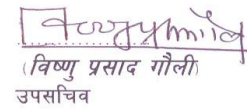 (विष्णु प्रसाद गौली)
उपसचिव